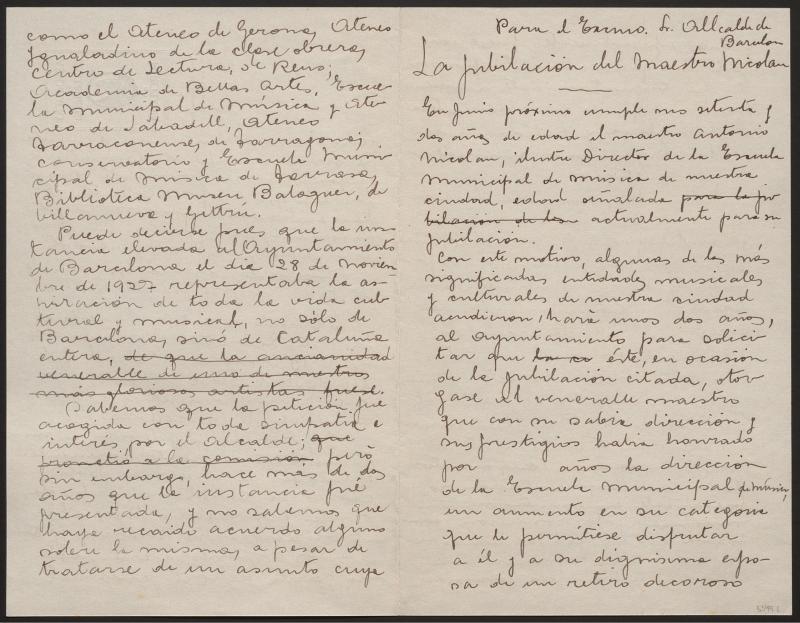 como el Ateneo de Gerona, Ateneo
Igualadino de la clase obrera,
Centro de Lectura, de Reus,
Academia de Bellas Artes, Escue
la Municipal de música y Ate
neo de Sabadell, Ateneo
Tarraconense, de Tarragona;
conservatorio y Escuela Muni
cipal de Música de Tarrasa,
Biblioteca Museu Balaguer, de
Villanueva y Geltrú.
Puede decirse pues que la ins
tancia elevada al Ayuntamiento
de Barcelona el dia 28 de Noviem
bre de 1927 representaba la as-
piración de toda la vida cul
tural y musical, no sólo de
Barcelona, sinó de Cataluña
entera, de que la ancianidad
venerable de uno de nuestros
más gloriosos artistas fuese.
Sabemos que la petición fué
acogida con toda simpatia e
interés por el Alcalde; que
prometió a la comisión peró
sin embargo, hace más de dos
años que la instancia fué
presentada, y no sabemos que
haya recaido acuerdo alguno
sobre la misma, a pesar de
tratarse de un asunto cuya
Para el Excmo. Sr. Allcalde de
Barcelona
La jubilación del Maestro Nicolau
En Junio próximo cumple sus setenta y
dos años de edad el maestro Antonio
Nicolau, ilustre Director de la Escuela
Municipal de música de nuestra
ciudad, edad señalada para la ju
bilación de los actualmente para su
jubilación.
Con este motivo, algunas de las más
significadas entidades musicales
y culturales de nuestra ciudad
acudieron, hará unos dos años,
al Ayuntamiento para solici
tar que éste, en ocasión
de la jubilación citada, otor
gase al venerable maestro
que con su sabia dirección y
sus prestigios habia honrado
por años la dirección
de la Escuela Municipal de música,
un aumento en su categoria
que le permitiese disfrutar
a él y a su dignísima espo-
sa de un retiro decoroso